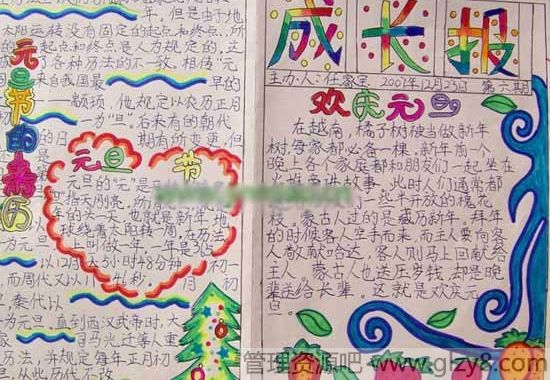 年。但是由于地
太阳运转没有固定的起点和终点，所
的起点和终点是人为规定的，这
了各种历法的不一致。相传“元
来自我国最早的
颛顼，他规定以农历正月
为“旦”。后来有的朝代
的日期有的变更，但
元旦节的来历
元旦节
元旦的“元”是
指大刚亮，
年的头一天，也就是新年
球绕着太阳转一周，在历法
上叫做一年，一年是365
以12个太
5小时48分种
初一
而周代又以11
月初
秦代以
为元旦，直到西汉武帝时，大
司马光，迁等人重
历法，并规定每年正月初
旦，从此历代不改
成长报
主办人：任家宝 2007年12月23日 第六期
欢庆元旦
在越南，橘子树被当做新年
树，每家都必备一棵。新年前一个
晚上各个家庭都和朋友们一起，坐在
火堆旁讲故事，此时人们通常都
一些半开放的桃花
枝。蒙古人过的是藏历新年。拜年
的时候客人空手而来，而主人要向客
人敬献哈达，客人则马上回献给
主人。蒙古人也送压岁钱，却是晚
辈送给长辈。这就是欢庆元
旦！
管理资源吧 www.glzy8.com